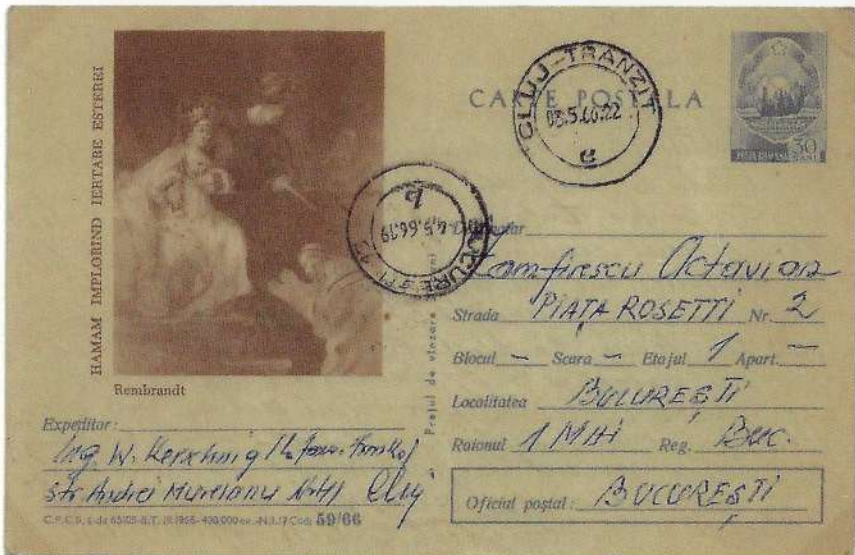 HAMAM IMPLORIND IERTARE ESTEREI
Rembrandt
CARTE POSTALA
CLUJ-TRANZIT
03.5.66.22
BUCURESTI
4.5.66.19
POSTA ROMANA
30
Destinatar
Zamfirescu Octavian
Strada PIAȚA ROSETTI Nr. 2
Blocul – Scara – Etajul 1 Apart. –
Localitatea BUCUREȘTI
Raionul 1 MAI Reg. Buc.
Oficiul poștal: BUCUREȘTI
Prețul de vînzare
Expeditor:
Ing. W. Kerschnig
str. Andrei Mureianu Nr 41 Cluj
59/66